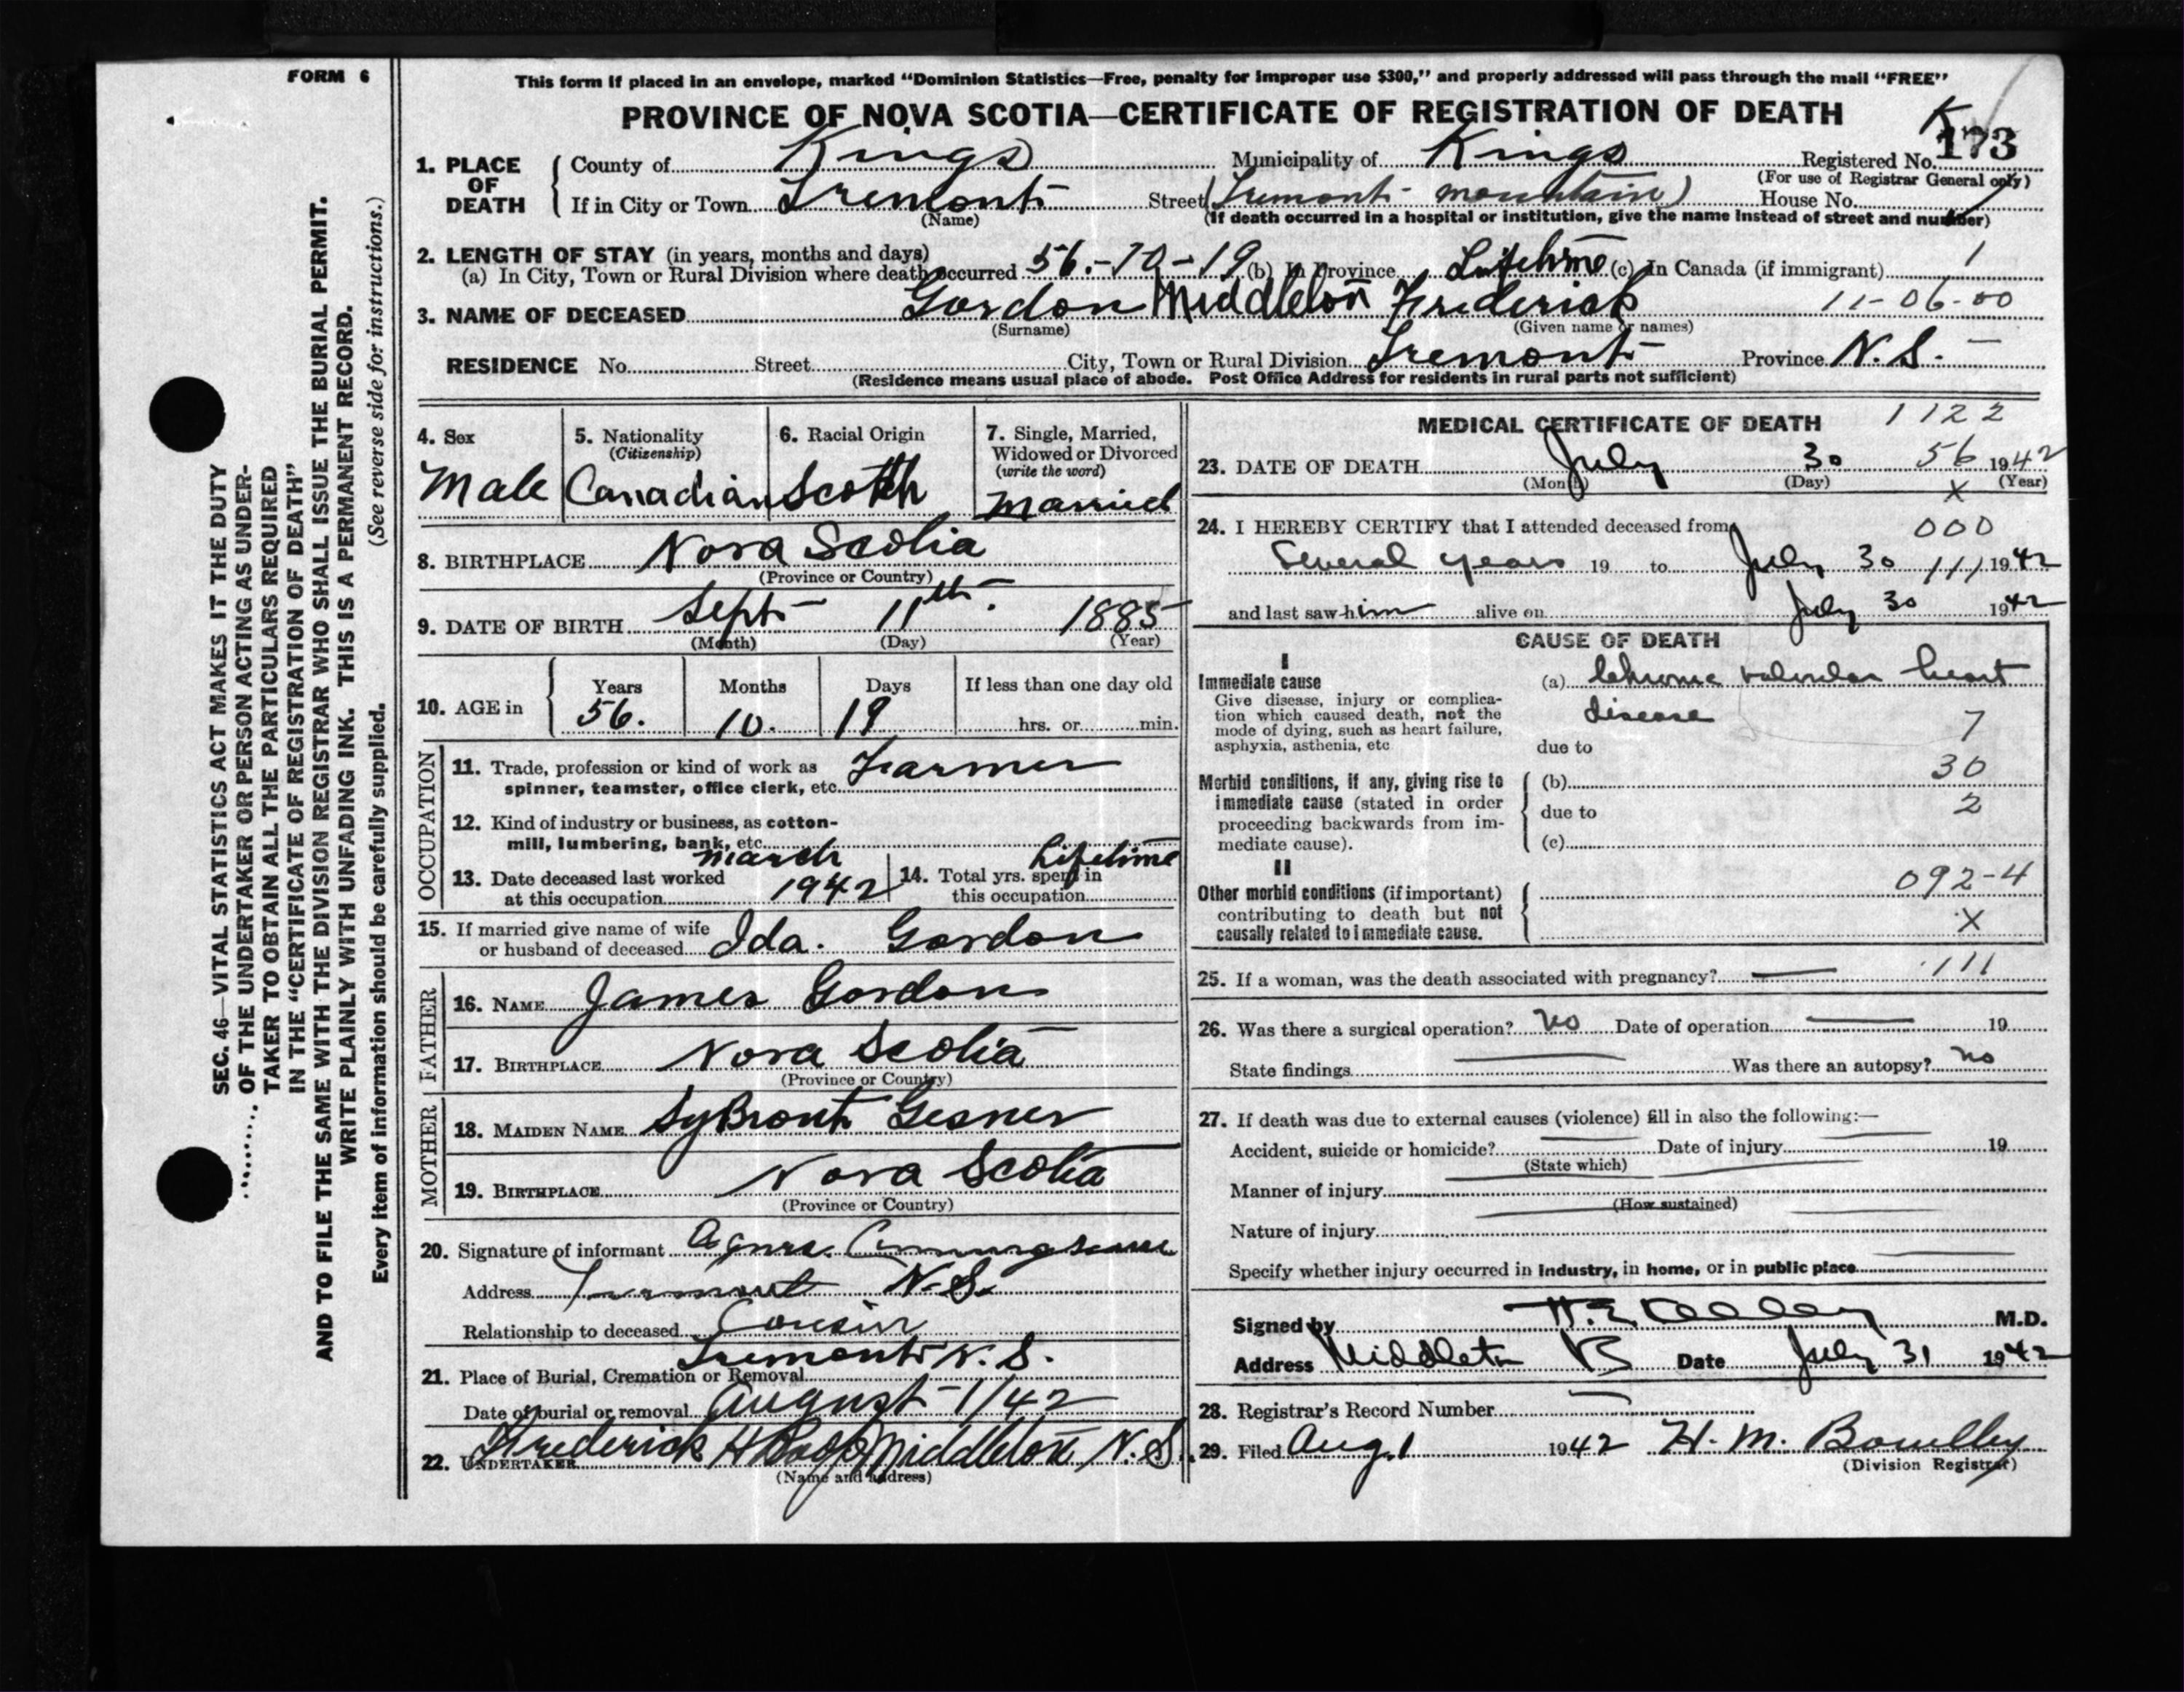 FORM 6
This form if placed in an envelope, marked “Dominion Statistics—Free, penalty for improper use $300,” and properly addressed will pass through the mail “FREE”
PROVINCE OF NOVA SCOTIA—CERTIFICATE OF REGISTRATION OF DEATH
K
1. PLACE OF DEATH County of Kings Municipality of Kings Registered No. 173
(For use of Registrar General only)
If in City or Town Tremont Street (Tremont mountain) House No.
(Name) (If death occurred in a hospital or institution, give the name instead of street and number)
2. LENGTH OF STAY (in years, months and days)
(a) In City, Town or Rural Division where death occurred 56.-10-19 (b) In Province Lifetime (c) In Canada (if immigrant) 1
3. NAME OF DECEASED Gordon Middleton Frederick 11-06-00
(Surname) (Given name or names)
RESIDENCE No. Street City, Town or Rural Division Tremont Province N.S.
(Residence means usual place of abode. Post Office Address for residents in rural parts not sufficient)
4. Sex Male
5. Nationality (Citizenship) Canadian
6. Racial Origin Scotch
7. Single, Married, Widowed or Divorced (write the word) Married
8. BIRTHPLACE Nova Scotia
(Province or Country)
9. DATE OF BIRTH Sept 11th. 1885
(Month) (Day) (Year)
10. AGE in Years Months Days If less than one day old
56. 10. 19 hrs. or min.
OCCUPATION
11. Trade, profession or kind of work as Farmer
spinner, teamster, office clerk, etc.
12. Kind of industry or business, as cotton-
mill, lumbering, bank, etc.
13. Date deceased last worked at this occupation March 1942
14. Total yrs. spent in this occupation Lifetime
15. If married give name of wife
or husband of deceased Ida. Gordon
FATHER
16. NAME James Gordon
17. BIRTHPLACE Nova Scotia
(Province or Country)
MOTHER
18. MAIDEN NAME SyBront Gesner
19. BIRTHPLACE Nova Scotia
(Province or Country)
20. Signature of informant Agnes
Address Tremont N.S.
Relationship to deceased Cousin
21. Place of Burial, Cremation or Removal Tremont N.S.
Date of burial or removal August 1/42
22. UNDERTAKER Frederick H Roop Middleton N.S.
(Name and address)
MEDICAL CERTIFICATE OF DEATH 1122
23. DATE OF DEATH July 30 56 1942
(Month) (Day) (Year)
X
24. I HEREBY CERTIFY that I attended deceased from 000
Several years 19 to July 30 111 1942
and last saw him alive on July 30 1942
CAUSE OF DEATH
I
Immediate cause
Give disease, injury or complica-
tion which caused death, not the
mode of dying, such as heart failure,
asphyxia, asthenia, etc
(a) Chronic valvular heart
disease 7
due to
Morbid conditions, if any, giving rise to
immediate cause (stated in order
proceeding backwards from im-
mediate cause).
(b) 30
due to 2
(c)
II
Other morbid conditions (if important)
contributing to death but not
causally related to immediate cause.
092-4
X
25. If a woman, was the death associated with pregnancy? — 111
26. Was there a surgical operation? no Date of operation — 19
State findings — Was there an autopsy? no
27. If death was due to external causes (violence) fill in also the following:—
Accident, suicide or homicide? Date of injury 19
(State which)
Manner of injury
(How sustained)
Nature of injury
Specify whether injury occurred in industry, in home, or in public place
Signed by M.D.
Address Middleton Date July 31 1942
28. Registrar's Record Number —
29. Filed Aug. 1 1942 H. M. Bowlby
(Division Registrar)
SEC. 46—VITAL STATISTICS ACT MAKES IT THE DUTY
OF THE UNDERTAKER OR PERSON ACTING AS UNDER-
TAKER TO OBTAIN ALL THE PARTICULARS REQUIRED
IN THE “CERTIFICATE OF REGISTRATION OF DEATH”
AND TO FILE THE SAME WITH THE DIVISION REGISTRAR WHO SHALL ISSUE THE BURIAL PERMIT.
WRITE PLAINLY WITH UNFADING INK. THIS IS A PERMANENT RECORD.
(See reverse side for instructions.)
Every item of information should be carefully supplied.